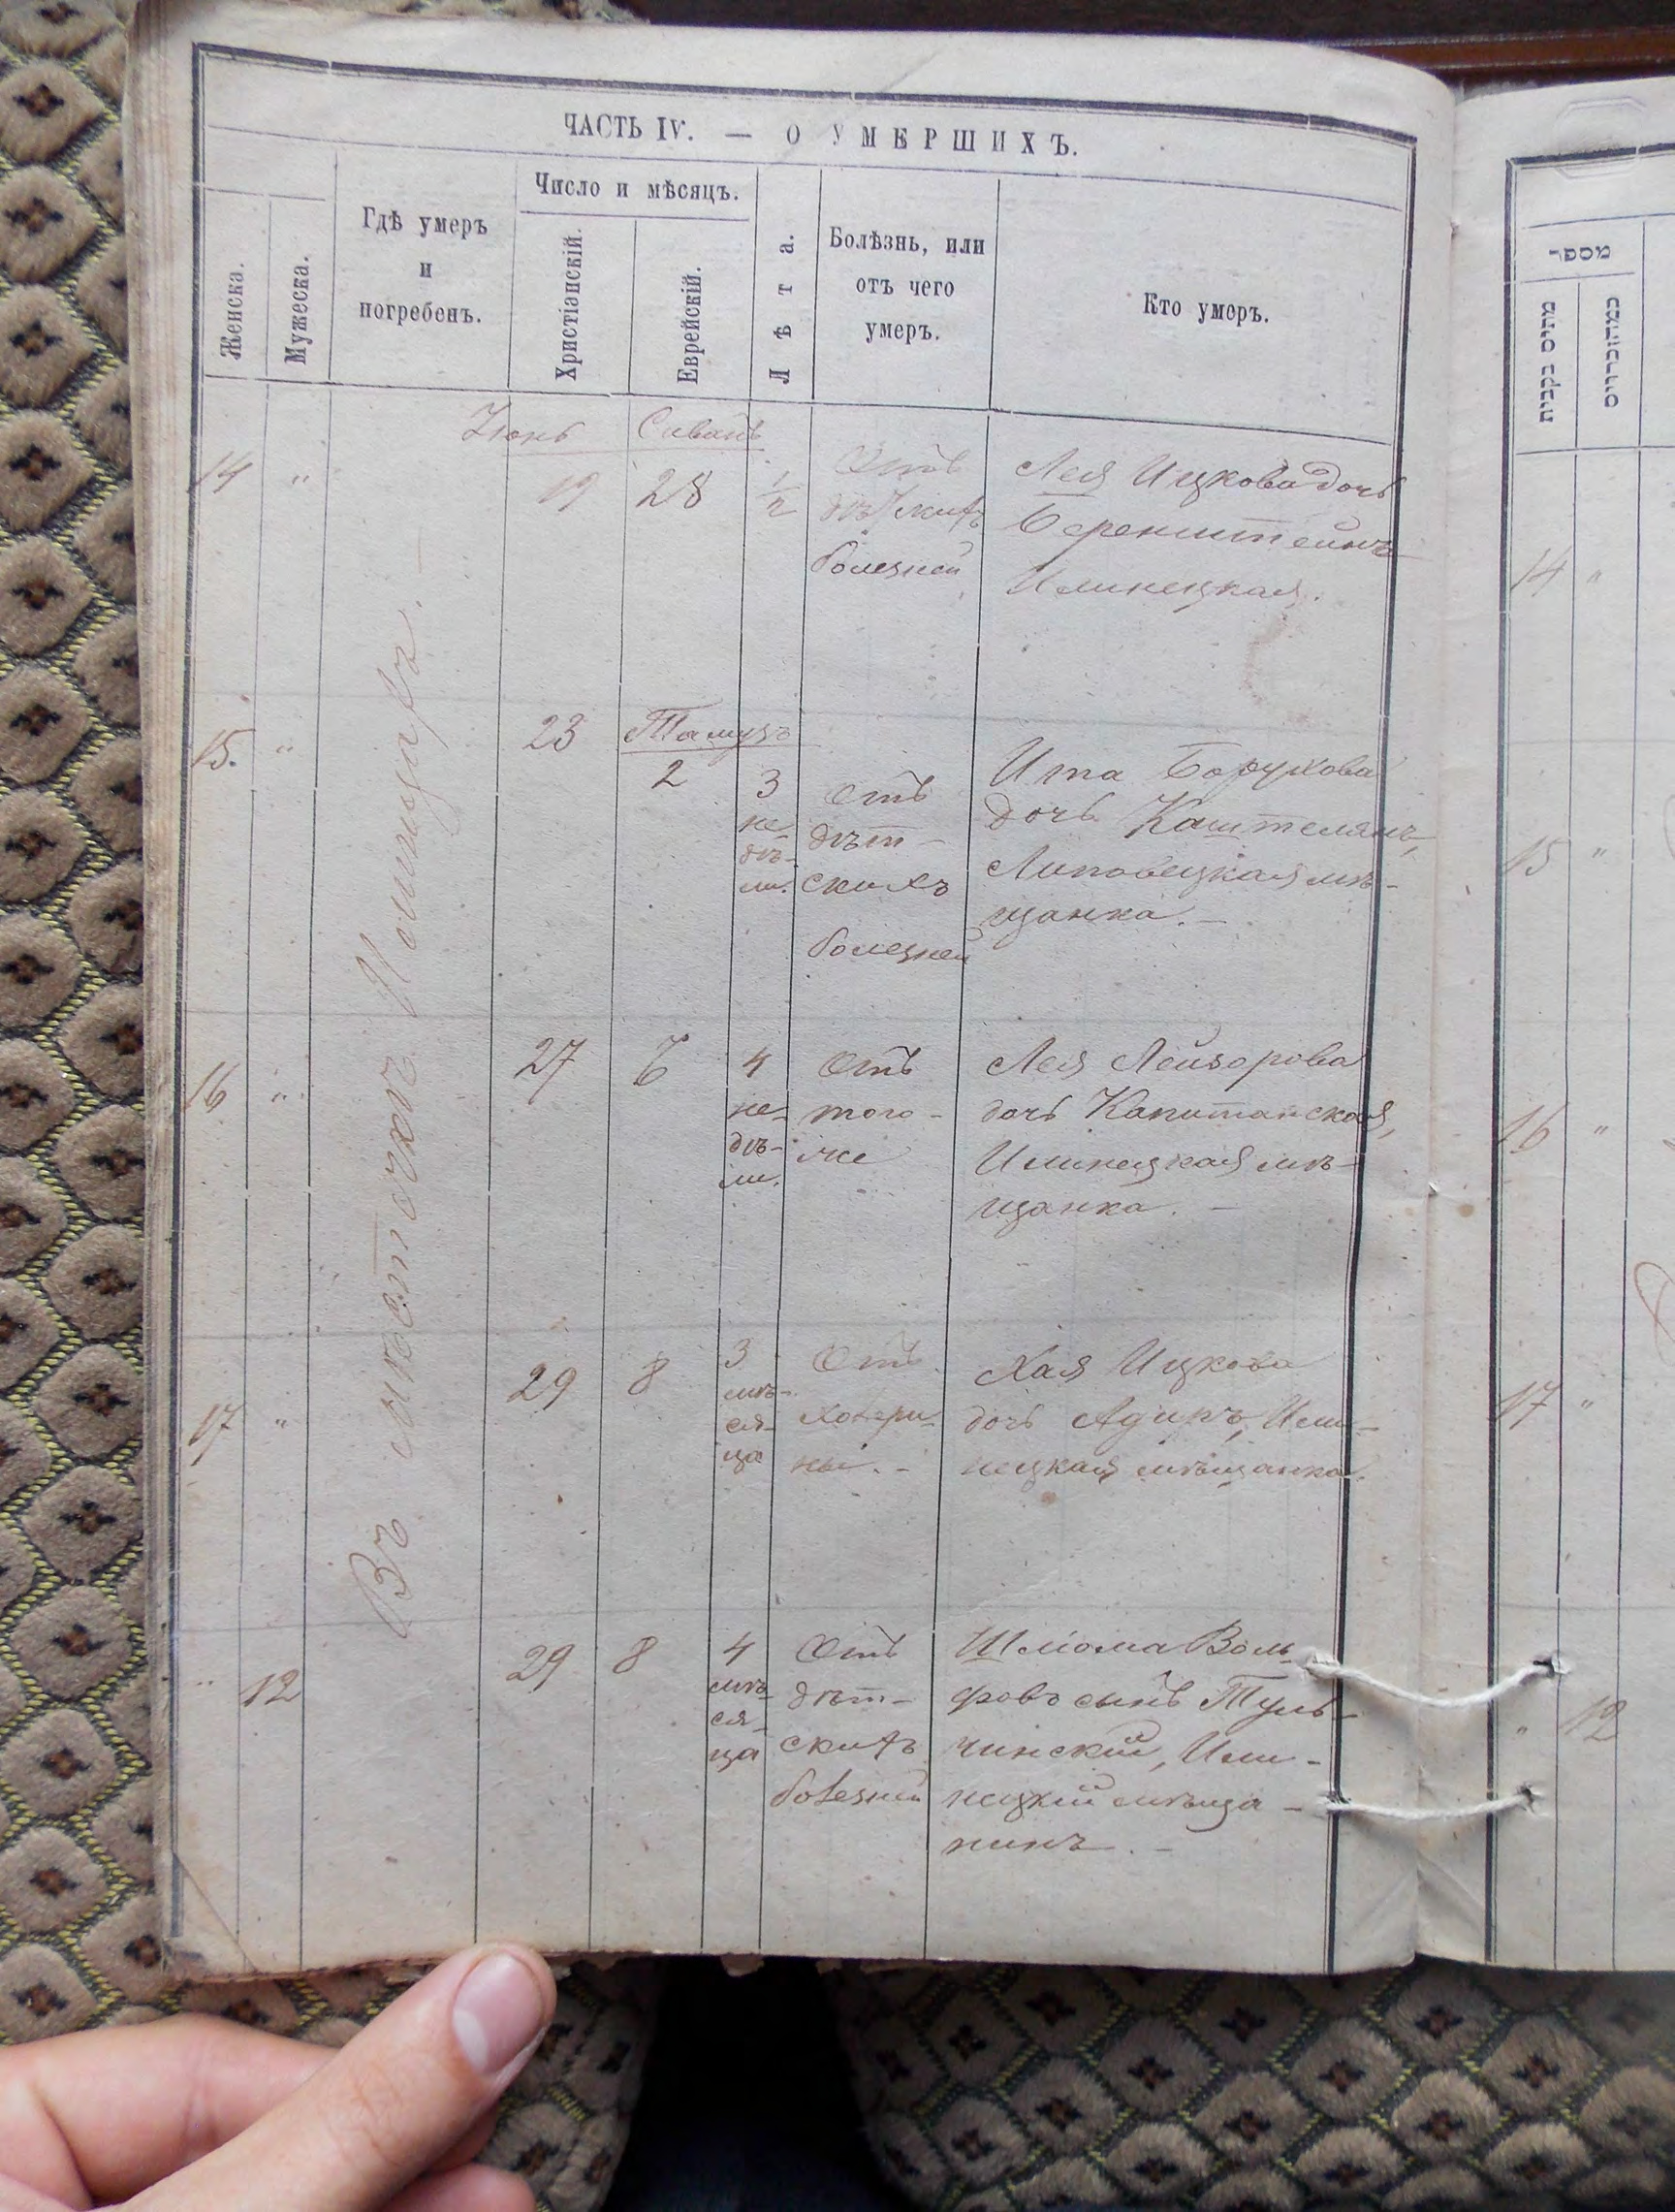 ЧАСТЬ IV. — О УМЕРШИХЪ.
Женска.
Мужеска.
Гдѣ умеръ
и
погребенъ.
Число и мѣсяцъ.
Христіанскій.
Еврейскій.
Лѣта.
Болѣзнь, или
отъ чего
умеръ.
Кто умеръ.
Въ мѣстечкѣ
Іюнь Сивань
14 " 19 28 1/2
Отъ
дѣтскихъ
болезней
Лея Ицкова дочь
Беренштейнъ
Илинецкая.
15. " 23 Тамузъ
2
3
не-
дѣ-
ли.
Отъ
дѣт-
скихъ
болезней
Ита Борухова
дочь Каштелянъ,
Липовецкая мѣ-
щанка. —
16 " 27 6
4
не-
дѣ-
ли.
Отъ
того-
же
Лея Лейзорова
дочь Капитанская,
Илинецкая мѣ-
щанка. —
17 " 29 8
3
мѣ-
ся-
ца
Отъ
холери-
ны. —
Хая Ицкова
дочь Адиръ, Или-
нецкая мѣщанка.
" 12 29 8
4
мѣ-
ся-
ца
Отъ
дѣт-
скихъ
болезней
Шлома Воль-
фовъ сынъ Туль-
чинскій, Или-
нецкій мѣща-
нинъ. —
מספר
מתים נקבות
14 "
15 "
16 "
17 "
" 12